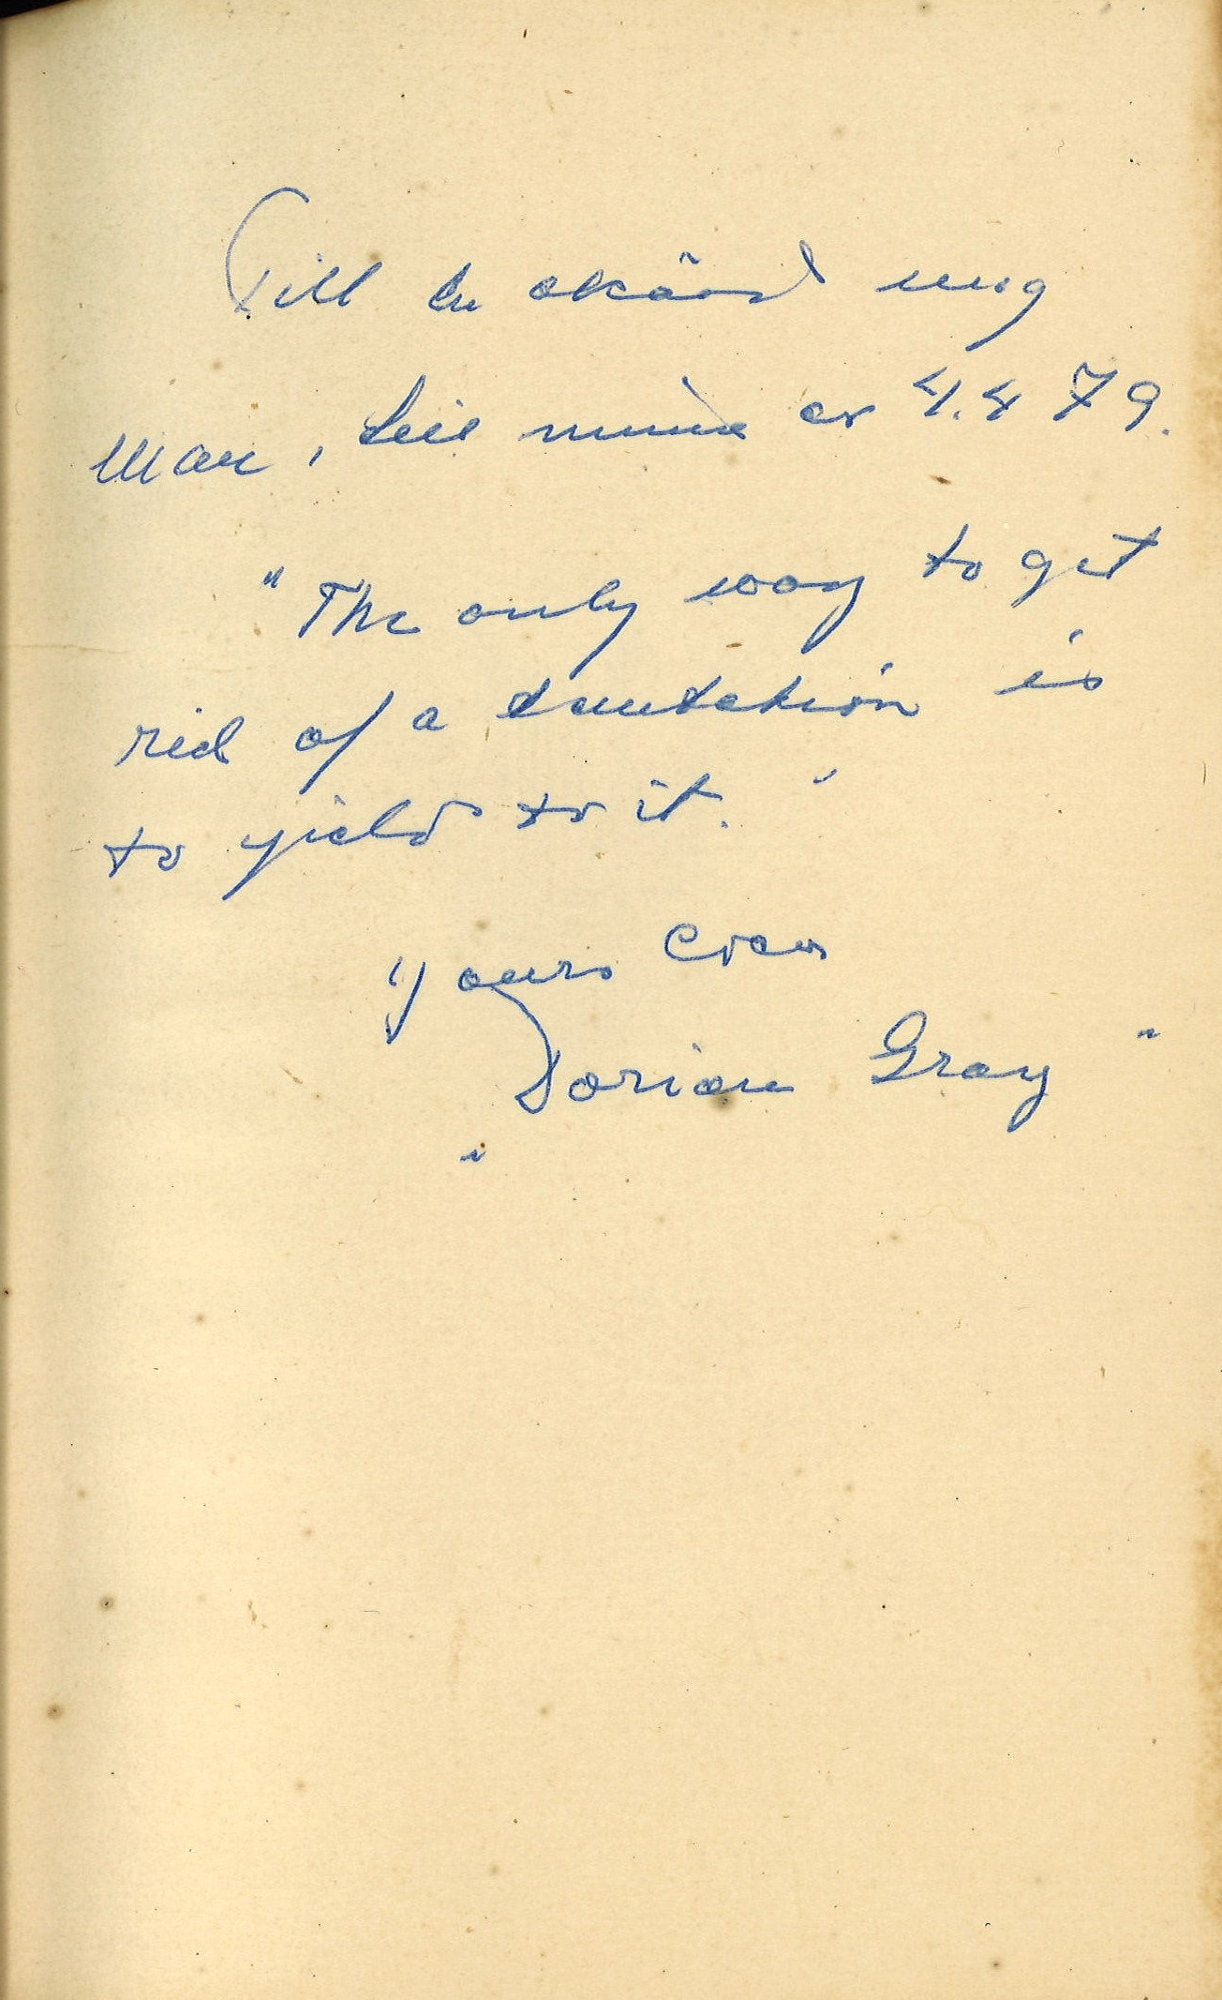 Till en okänd ung
man, till minne av 4.4 79.
"The only way to get
rid of a temtation is
to yield to it."
Yours ever
"Dorian Gray"